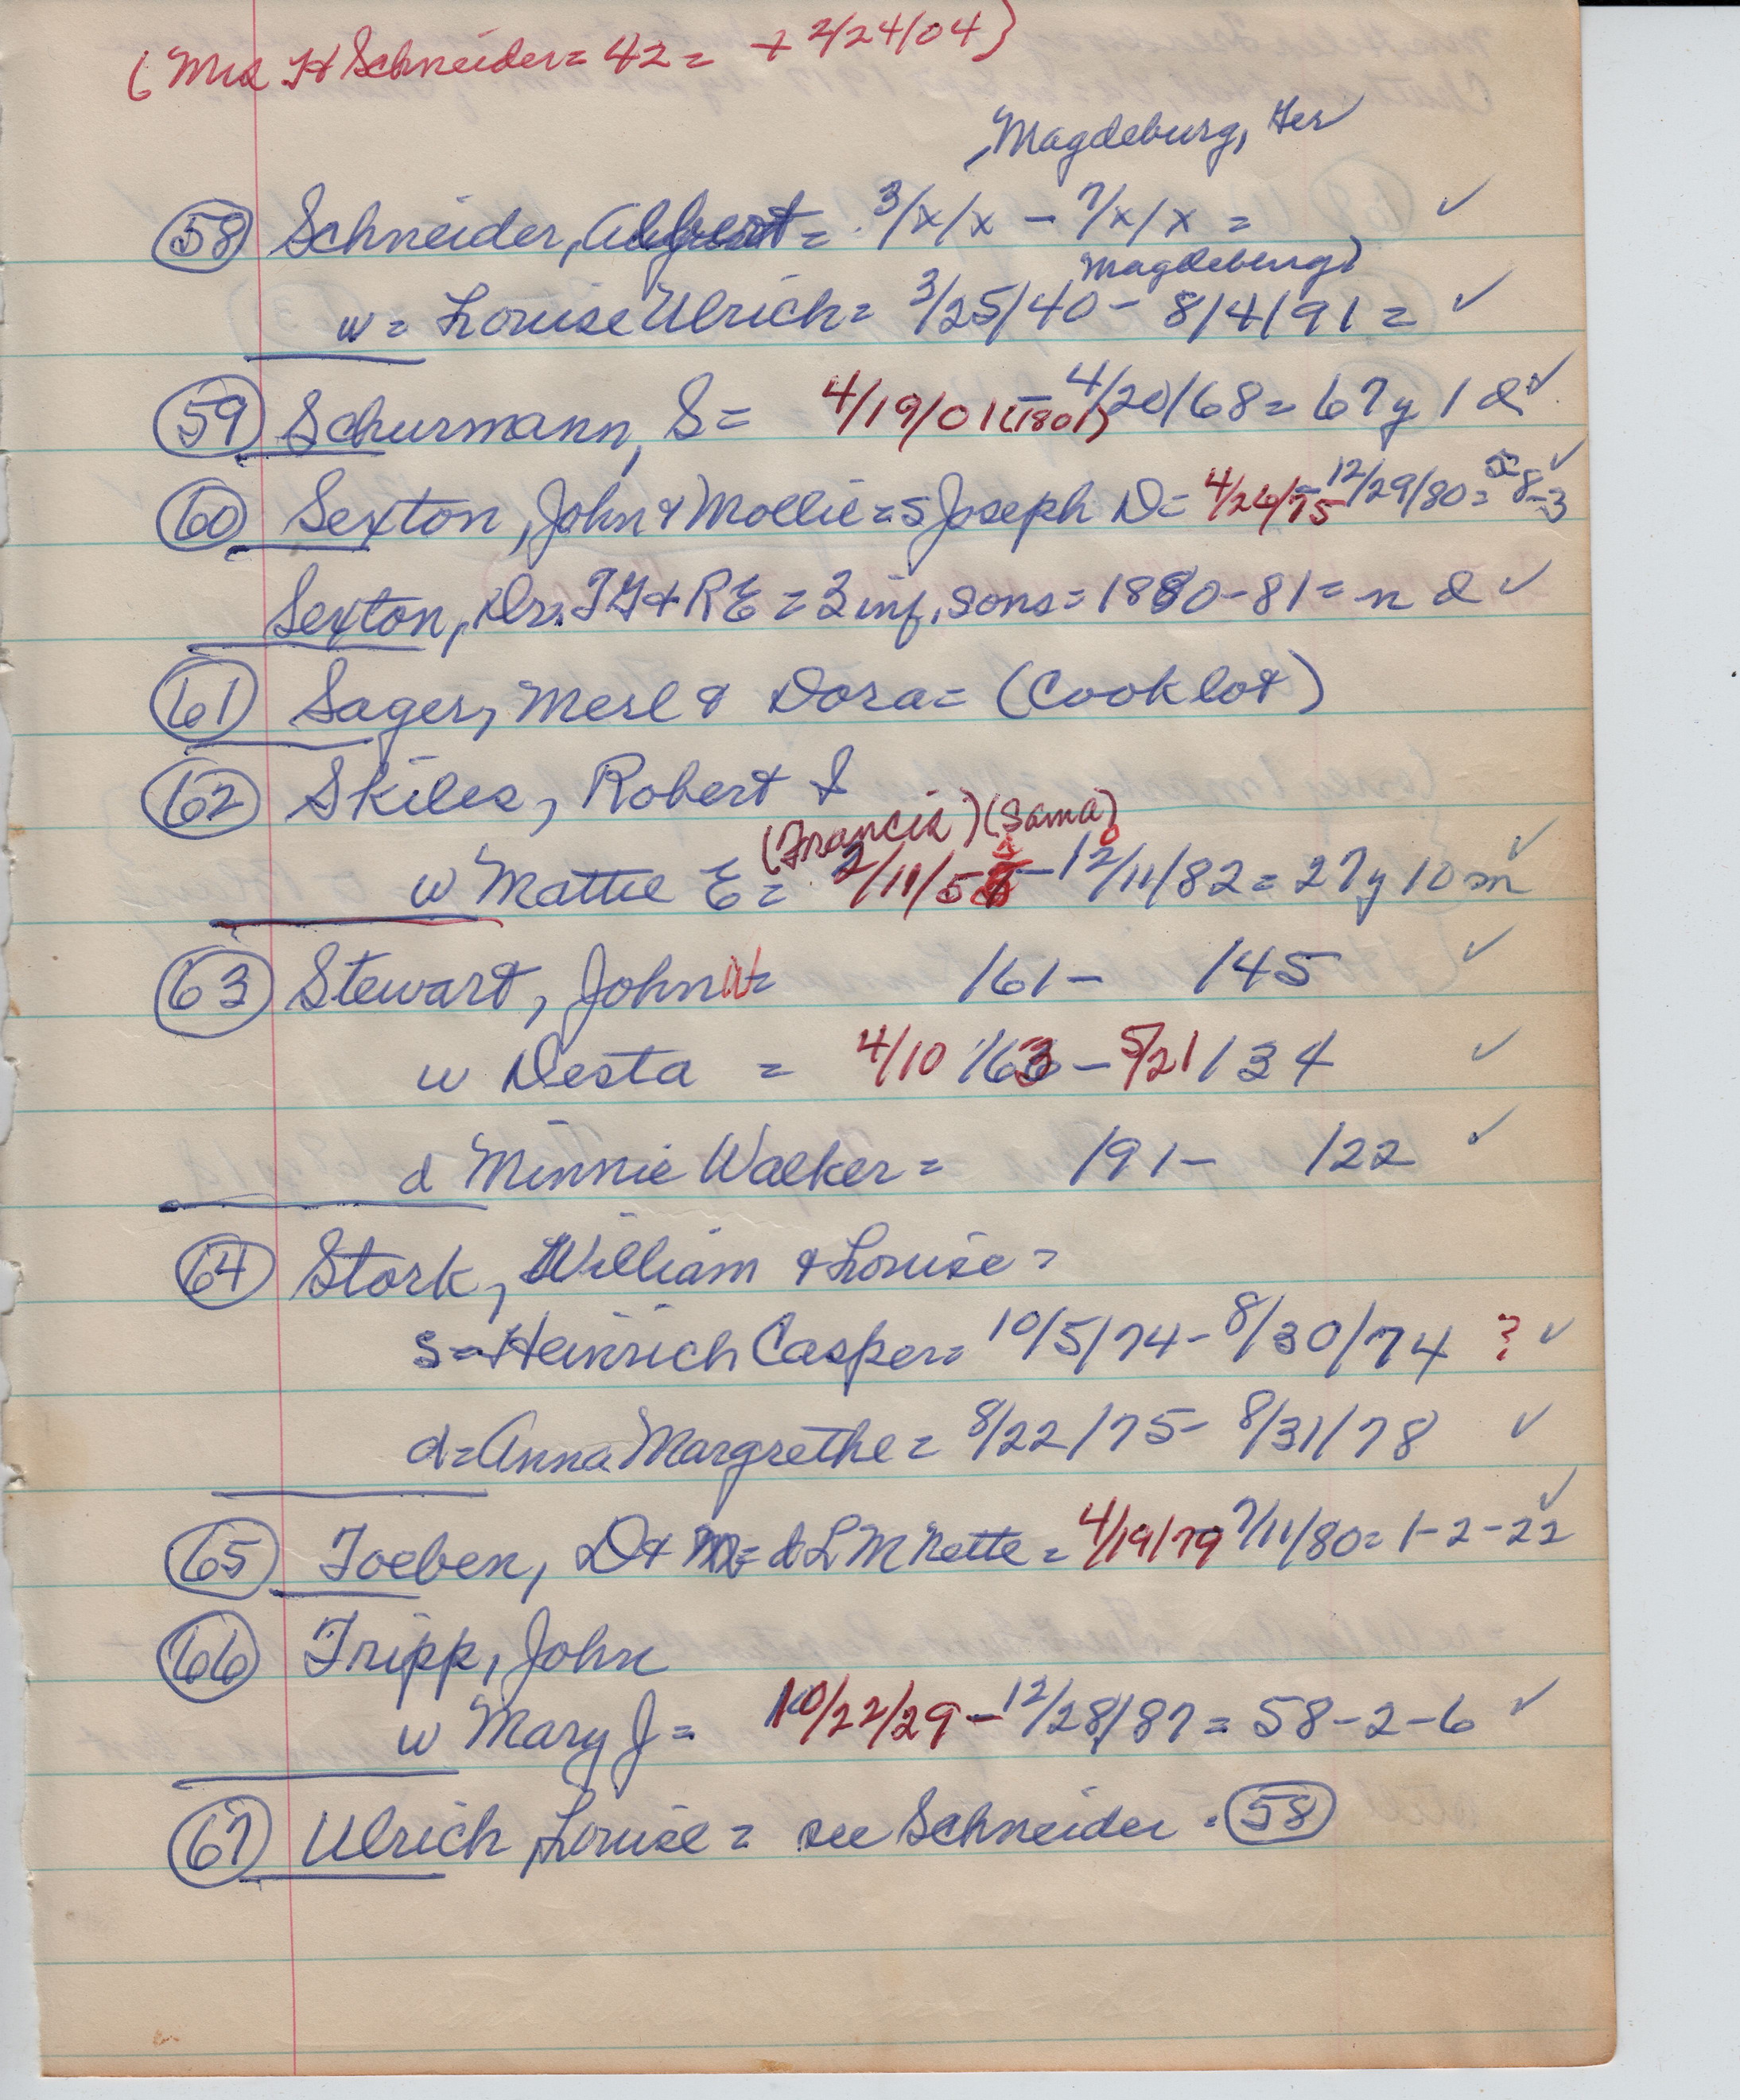 (Mrs H Schneider = 42 = + 2/24/04)
, Magdeburg, Ger ✓
58 Schneider, = 3/x/x - ?/x/x = ✓
Magdeburg)
w = Louise Ulrich = 3/25/40 - 8/4/91 = ✓
59 Schurmann, S = 4/19/01 (1801) - 4/20/68 = 67y 1d ✓
60 Sexton, John & Mollie = s Joseph D = 4/26/75 - 12/29/80 = 5-8-3 ✓
Sexton, Drs. TG & RE = 3 inf. sons = 1880-81 = n d ✓
61 Sager, Merl & Dora = (Cook lot)
62 Skiles, Robert S
(Francis) (Sama)
w Mattie E = 2/11/55 - 12/11/82 = 27y 10m ✓
63 Stewart, John W = /61 - /45 ✓
w Desta = 4/10/63 - 5/21/34 ✓
d Minnie Walker = /91 - /22 ✓
64 Stork, William & Louise =
s = Heinrich Casper = 10/5/74 - 8/30/74 ? ✓
d = Anna Margrethe = 8/22/75 - 8/31/78 ✓
65 Toeben, D & M = d L M Nette = 4/19/79 7/11/80 = 1-2-22 ✓
66 Tripp, John
w Mary J = 10/22/29 - 12/28/87 = 58-2-6 ✓
67 Ulrich, Louise = see Schneider. 58